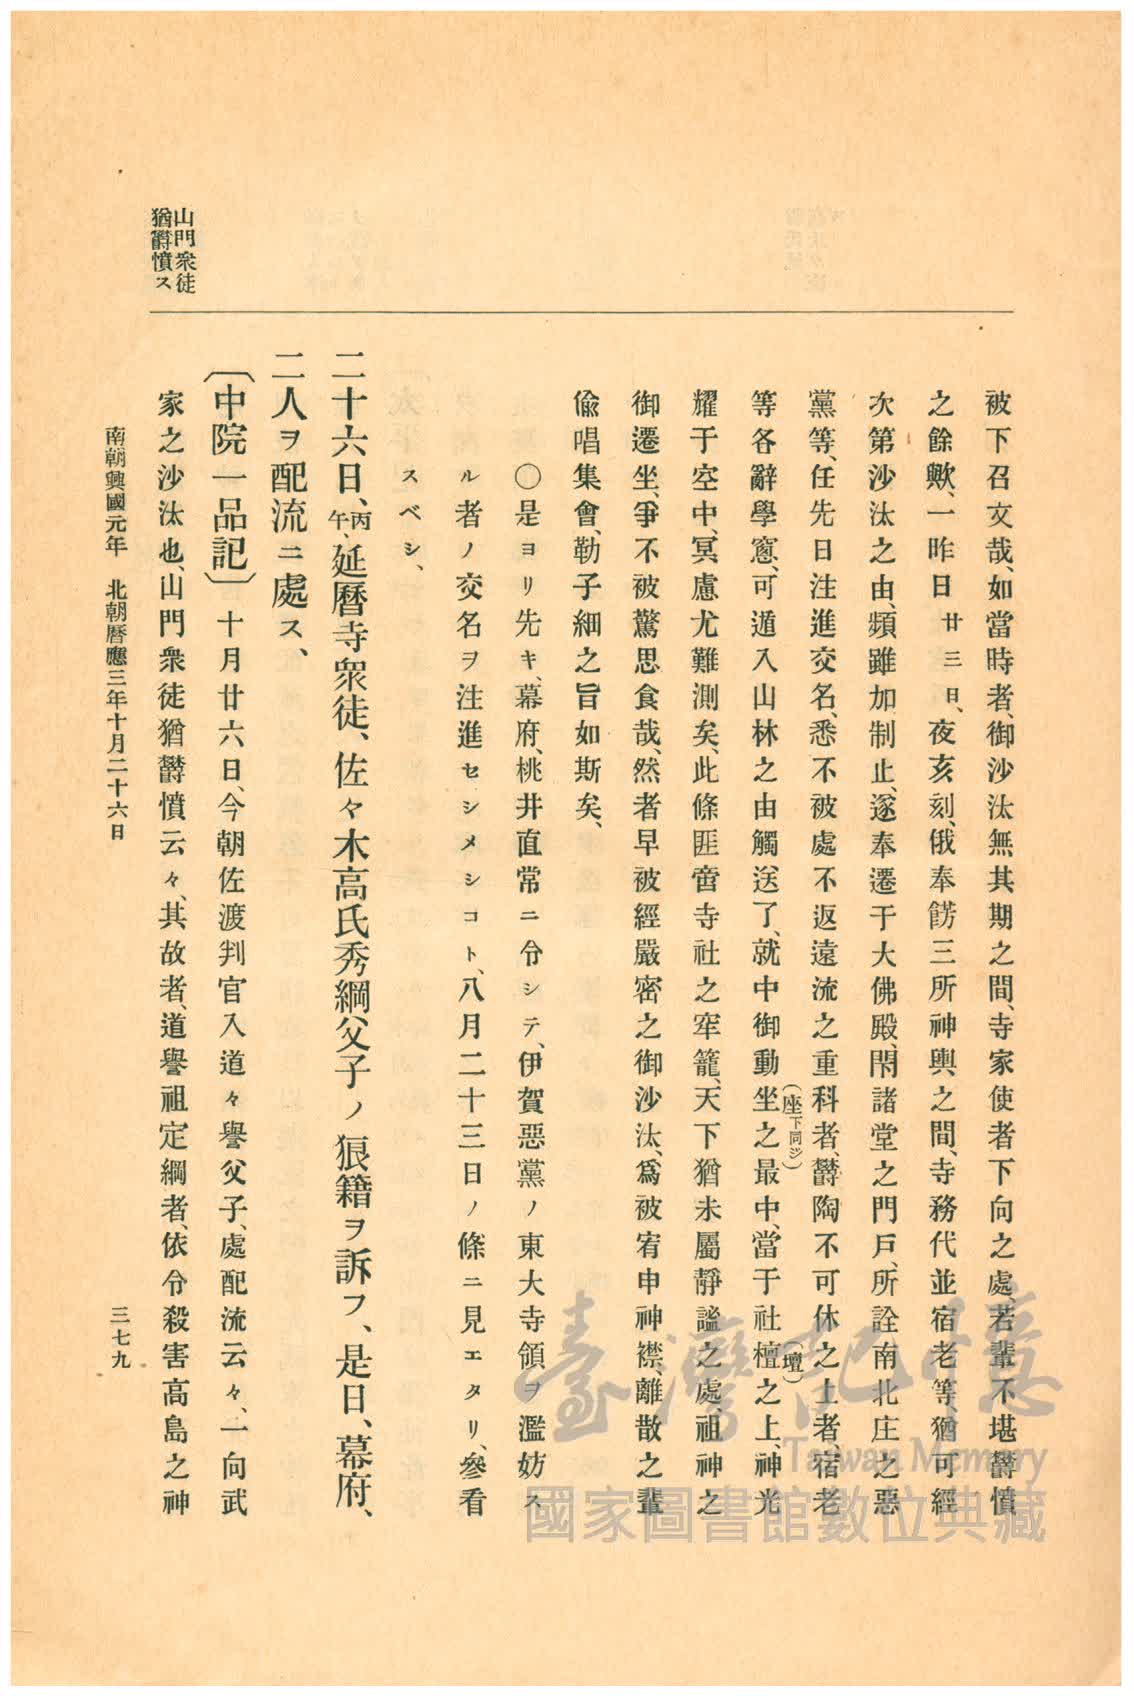 山門衆徒
猶欝憤ス
被下召文哉、如當時者、御沙汰無其期之間、寺家使者下向之處、若輩不堪欝憤
之餘歟、一昨日廿三日、夜亥刻、俄奉餝三所神輿之間、寺務代並宿老等、猶可經
次第沙汰之由、頻雖加制止、遂奉遷于大佛殿、閇諸堂之門戸、所詮南北庄之惡
黨等、任先日注進交名、悉不被處不返遠流之重科者、欝陶不可休之上者、宿老
等各辭學窻、可遁入山林之由觸送了、就中御動坐(座下同ジ)之最中、當于社檀(壇)之上、神光
耀于空中、冥慮尤難測矣、此條匪啻寺社之牢籠、天下猶未屬靜謐之處、祖神之
御遷坐、爭不被驚思食哉、然者早被經嚴密之御沙汰、爲被宥申神襟、離散之輩
僉唱集會、勒子細之旨如斯矣、
○是ヨリ先キ、幕府、桃井直常ニ令シテ、伊賀惡黨ノ東大寺領ヲ濫妨ス
ル者ノ交名ヲ注進セシメシコト、八月二十三日ノ條ニ見エタリ、參看
スベシ、
二十六日、丙午、延曆寺衆徒、佐々木高氏秀綱父子ノ狼籍ヲ訴フ、是日、幕府、
二人ヲ配流ニ處ス、
〔中院一品記〕十月廿六日、今朝佐渡判官入道々譽父子、處配流云々、一向武
家之沙汰也、山門衆徒猶欝憤云々、其故者、道譽祖定綱者、依令殺害高島之神
南朝興國元年 北朝曆應三年十月二十六日
三七九
臺灣記憶
Taiwan Memory
國家圖書館數位典藏